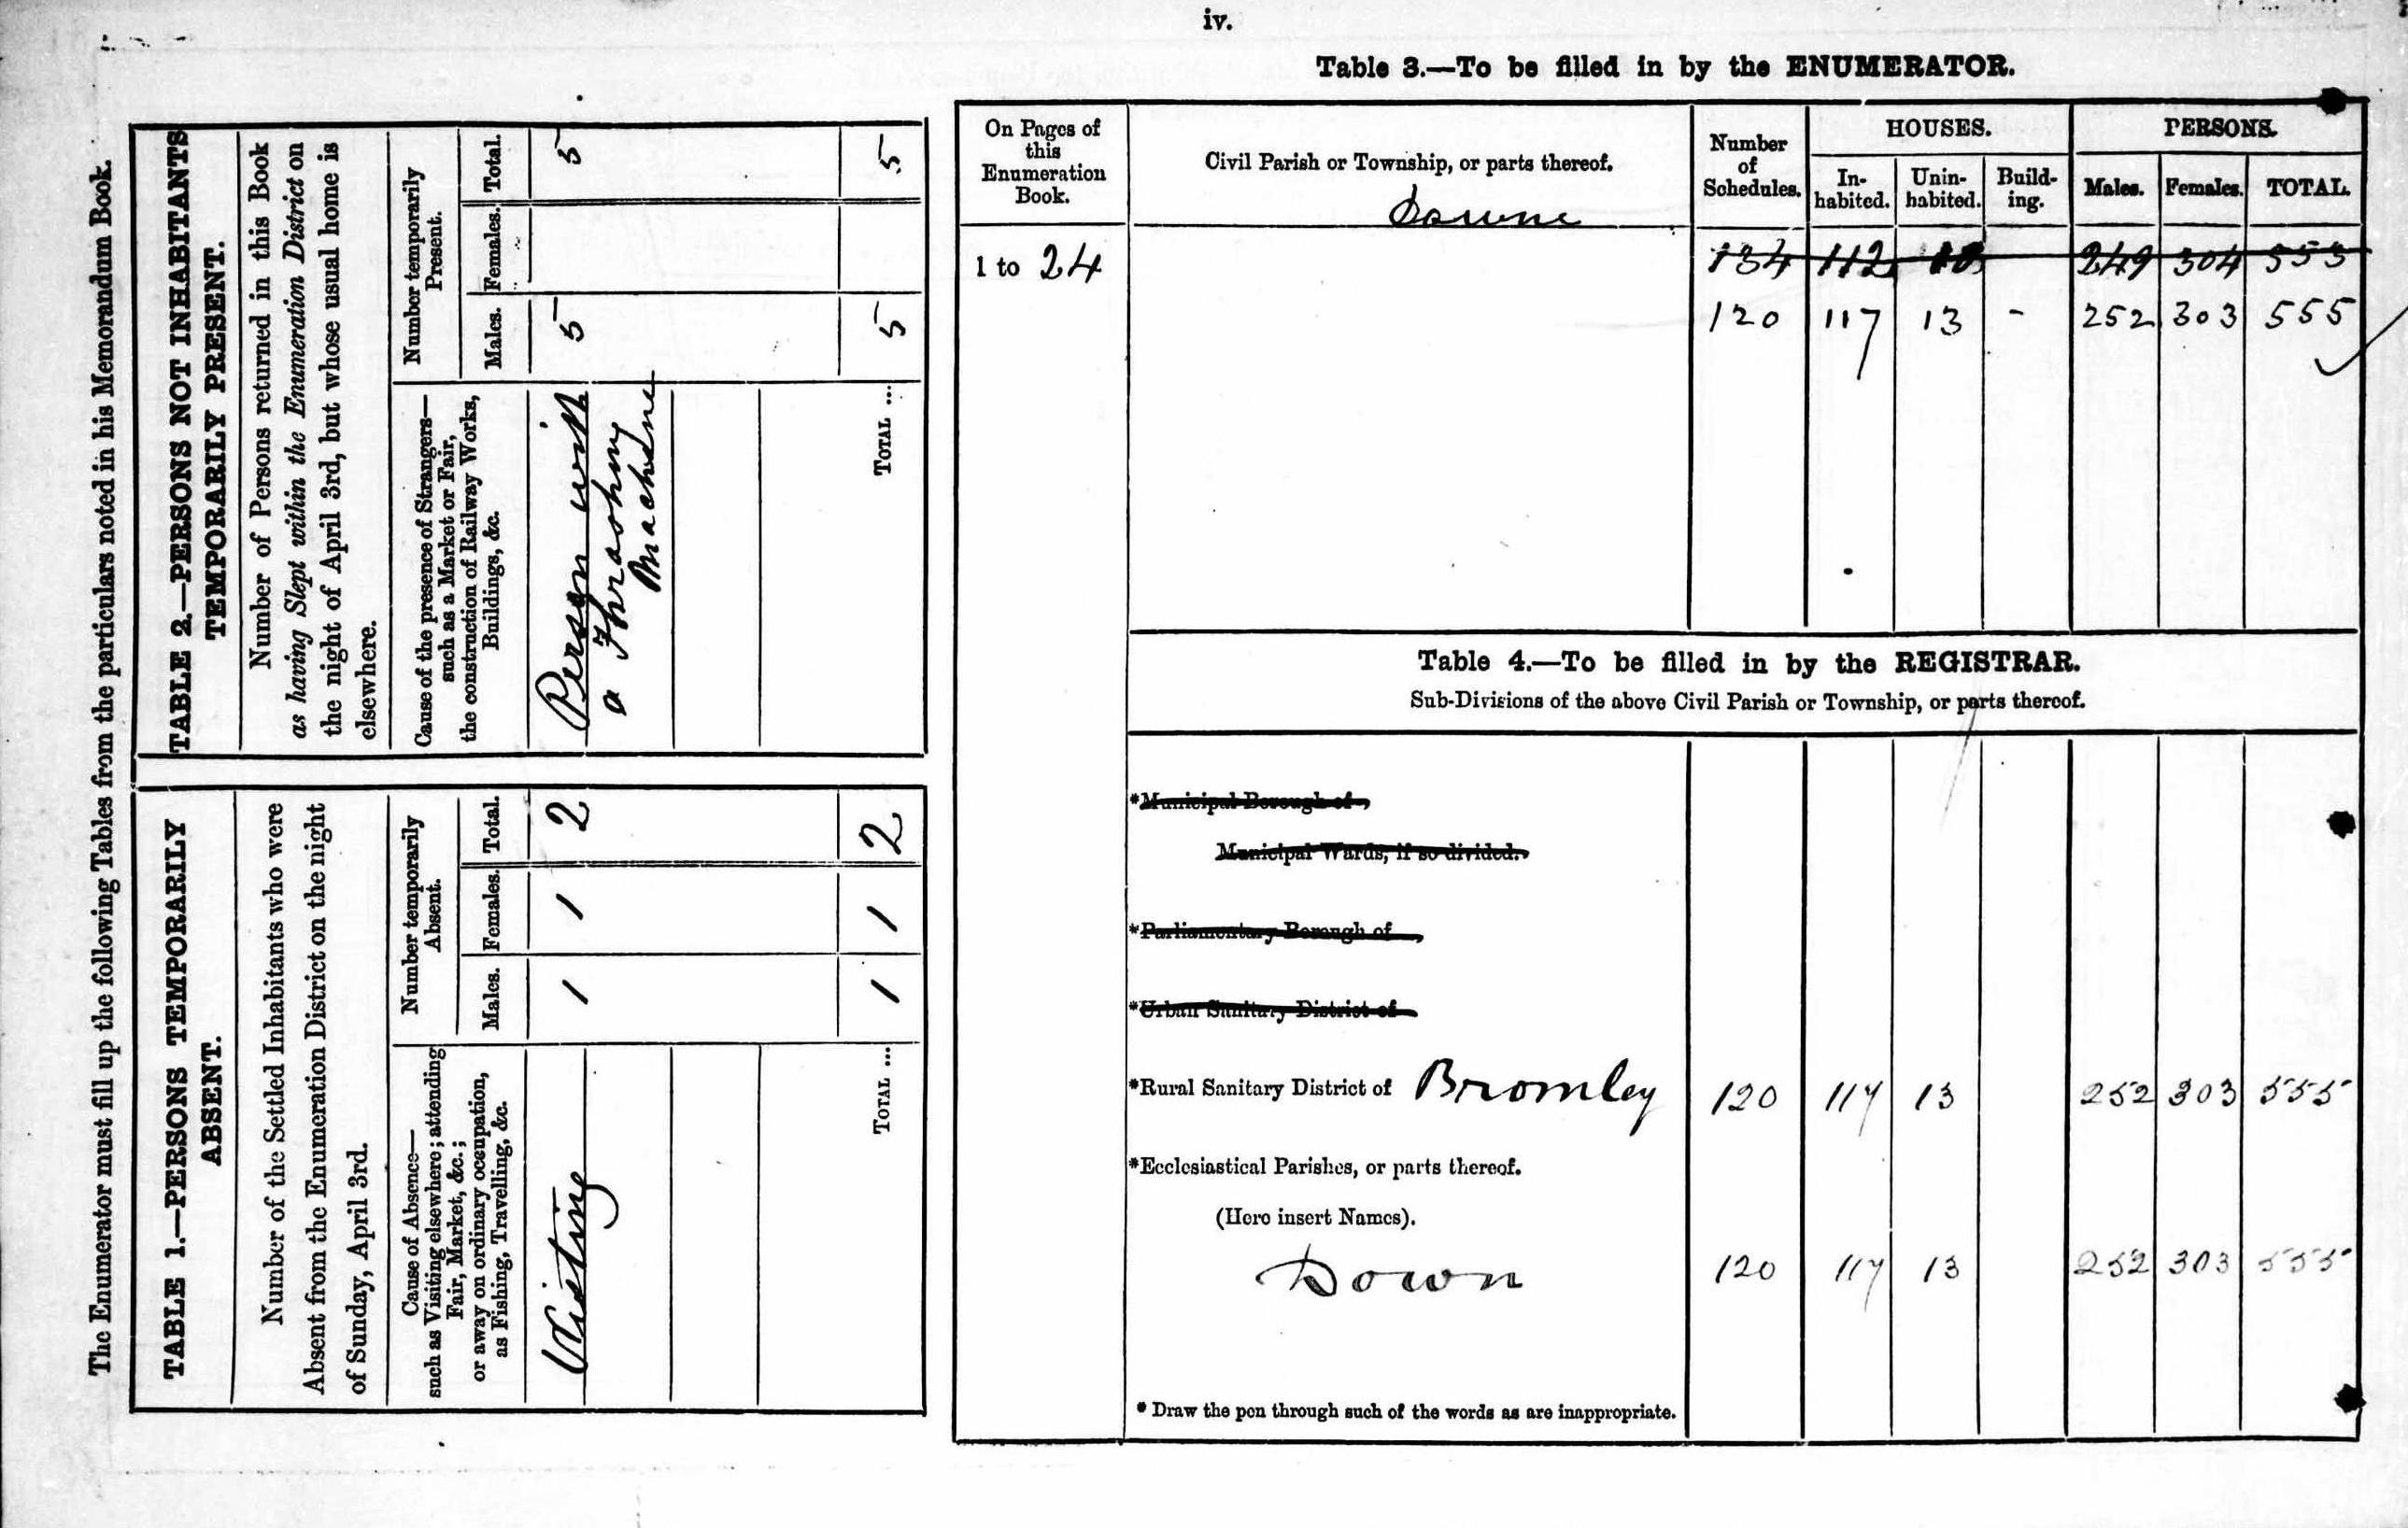 iv.
The Enumerator must fill up the following Tables from the particulars noted in his Memorandum Book.
TABLE 1.—PERSONS TEMPORARILY
ABSENT.
Number of the Settled Inhabitants who were
Absent from the Enumeration District on the night
of Sunday, April 3rd.
Cause of Absence—
such as Visiting elsewhere; attending
Fair, Market, &c.;
or away on ordinary occupation,
as Fishing, Travelling, &c.
Number temporarily
Absent.
Males. Females. Total.
Visiting 1 1 2
TOTAL ... 1 1 2
TABLE 2.—PERSONS NOT INHABITANTS
TEMPORARILY PRESENT.
Number of Persons returned in this Book
as having Slept within the Enumeration District on
the night of April 3rd, but whose usual home is
elsewhere.
Cause of the presence of Strangers—
such as a Market or Fair,
the construction of Railway Works,
Buildings, &c.
Number temporarily
Present.
Males. Females. Total.
Person with 5 5
a Thrashing
Machine
TOTAL ... 5 5
Table 3.—To be filled in by the ENUMERATOR.
On Pages of
this
Enumeration
Book.
Civil Parish or Township, or parts thereof.
Downe
Number
of
Schedules.
HOUSES.
In-
habited.
Unin-
habited.
Build-
ing.
PERSONS.
Males. Females. TOTAL.
1 to 24 134 112 249 304 553
120 117 13 - 252 303 555
Table 4.—To be filled in by the REGISTRAR.
Sub-Divisions of the above Civil Parish or Township, or parts thereof.
*Municipal Borough of
Municipal Wards, if so divided.
*Parliamentary Borough of
*Urban Sanitary District of
*Rural Sanitary District of Bromley 120 117 13 252 303 555
*Ecclesiastical Parishes, or parts thereof.
(Here insert Names).
Down 120 117 13 252 303 555
* Draw the pen through such of the words as are inappropriate.